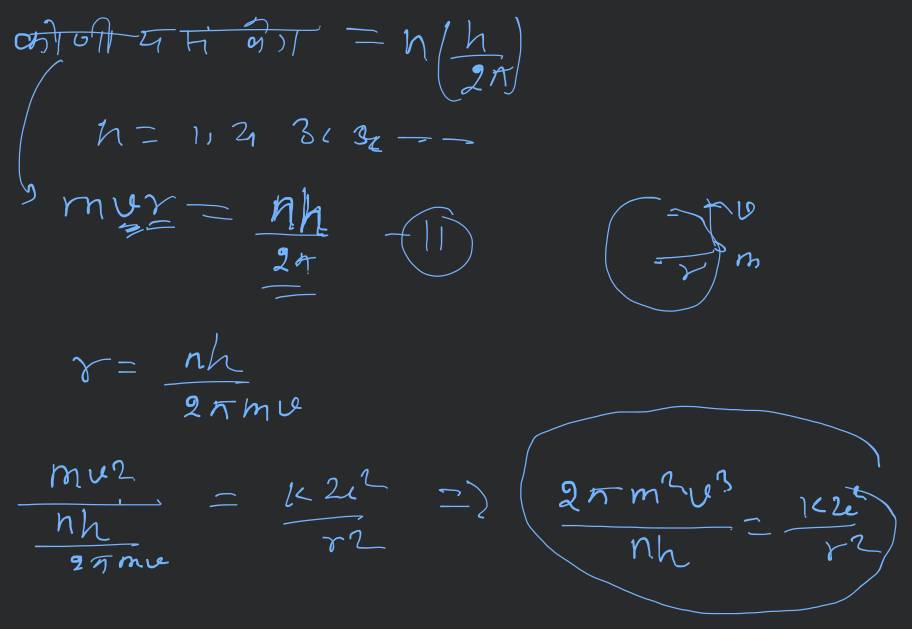 कोणीय संवेग = n(h/2π)
n = 1, 2, 3, 3, - -
mvr = nh/2π - 11
v
r m
r = nh/2πmv
mv2/(nh/2πmv) = k2e²/r2 ⇒ 2πm²v³/nh = k2e²/r2